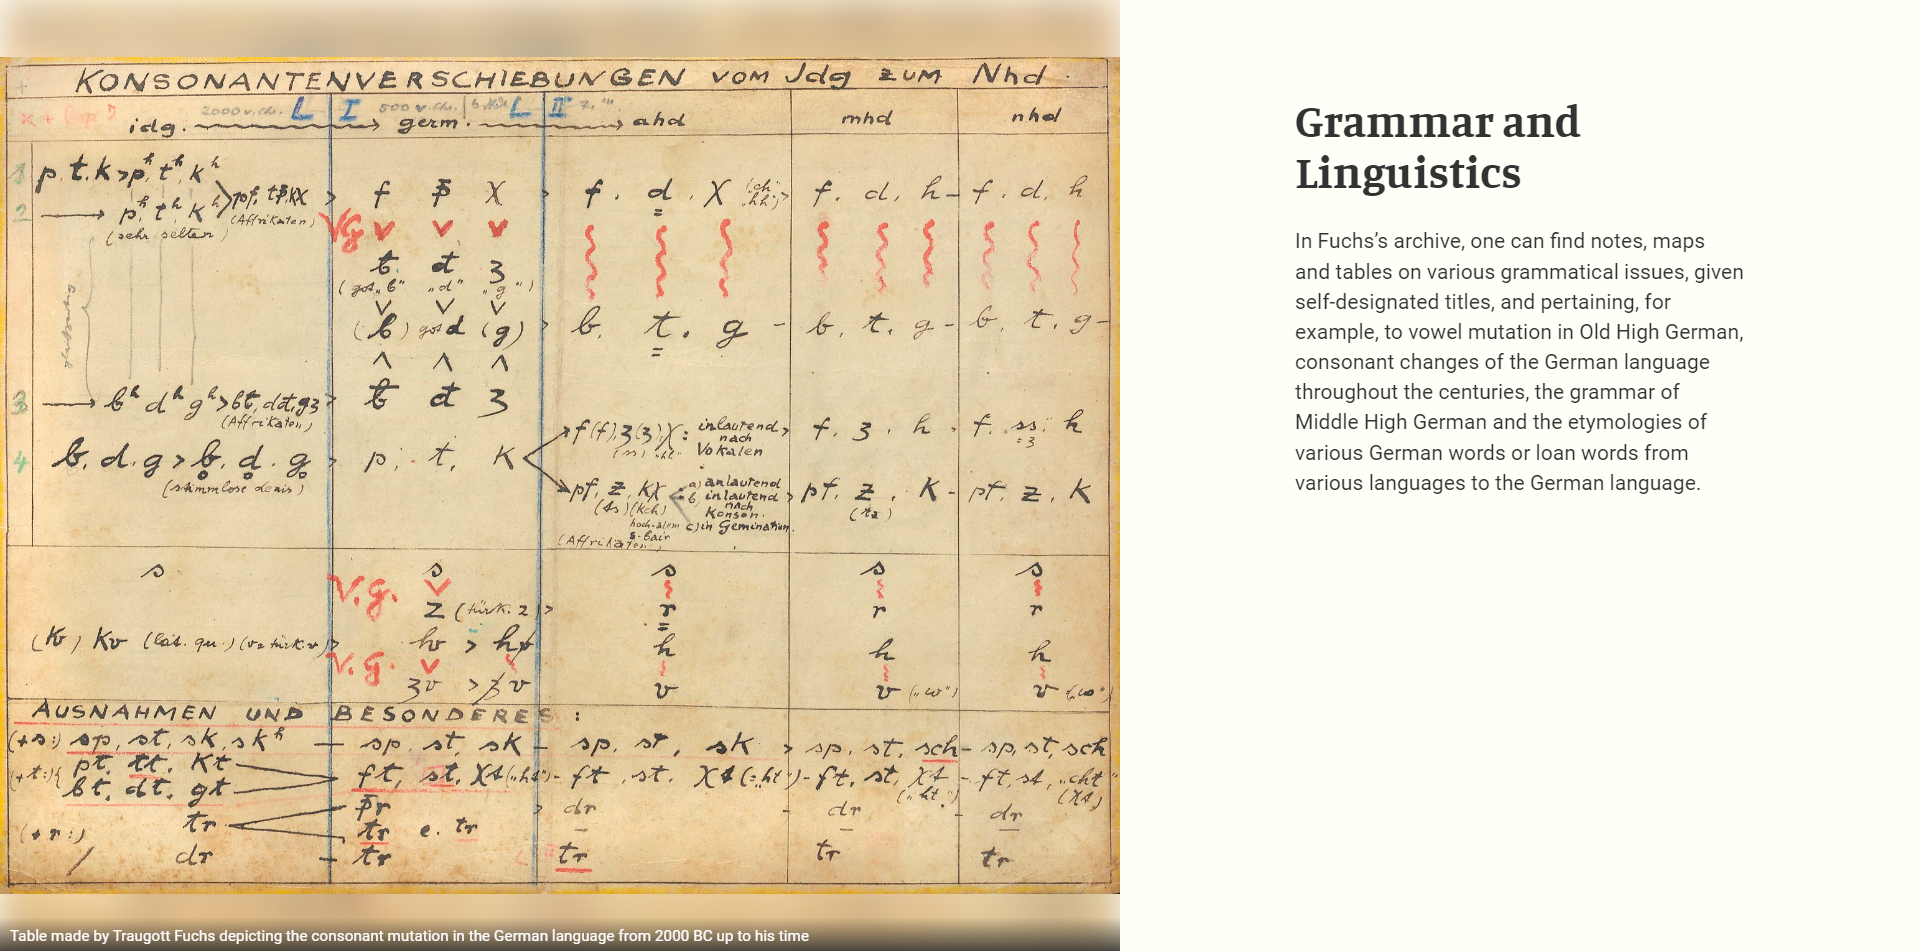 KONSONANTENVERSCHIEBUNGEN VOM Jdg ZUM Nhd.
2000 v. Chr. L I 500 v. Chr. L II 7.
idg. germ. ahd mhd nhd
1 p. t. k > pʰ. tʰ. kʰ
pf, tþ, kχ > f þ χ > f. d. χ ("ch" "hh") > f. d. h – f. d. h
2 pʰ. tʰ. kʰ (Affrikaten)
(sehr selten)
VG v v v
ƀ. đ ʒ
(got. "b" "d" "g")
v v v
(b) got d (g) > b. t. g – b. t. g – b. t. g –
ʌ ʌ ʌ
3 bʰ dʰ gʰ > bƀ, dđ, gʒ > ƀ đ ʒ
(Affrikaten)
f(f). ʒ(ʒ). χ: inlautend nach Vokalen > f. ʒ. h – f. ss. h
= ʒ
4 b. d. g > b̥. d̥. g̥ > p. t. K
(stimmlose Lenis)
pf. z. kχ a) anlautend b) inlautend nach Konson. c) in Gemination. > pf. z. K – pf. z. K
(ts) (kch) (tz)
hoch-alem
s-bair
(Affrikaten)
s s s s s
V.G. v
z (türk. z) > r r r
(K) Kv (lat. qu) (v = türk. v) > hv > hv h h h
V.G. v
ʒv > ʒv v v ("w") v ("w")
AUSNAHMEN UND BESONDERES:
(+s:) sp, st, sk, skʰ – sp. st, sk – sp. st, sk > sp, st, sch – sp, st, sch
pt, tt, kt
(+t:) ft, st, χt ("ht") – ft, st. χt (=ht) – ft, st, χt – ft, st, "cht"
bt, dt, gt ("ht") (χt)
þr > dr – dr – dr
(+r:) tr tr e. tr
/ dr – tr tr tr tr
Table made by Traugott Fuchs depicting the consonant mutation in the German language from 2000 BC up to his time
Grammar and
Linguistics
In Fuchs’s archive, one can find notes, maps
and tables on various grammatical issues, given
self-designated titles, and pertaining, for
example, to vowel mutation in Old High German,
consonant changes of the German language
throughout the centuries, the grammar of
Middle High German and the etymologies of
various German words or loan words from
various languages to the German language.